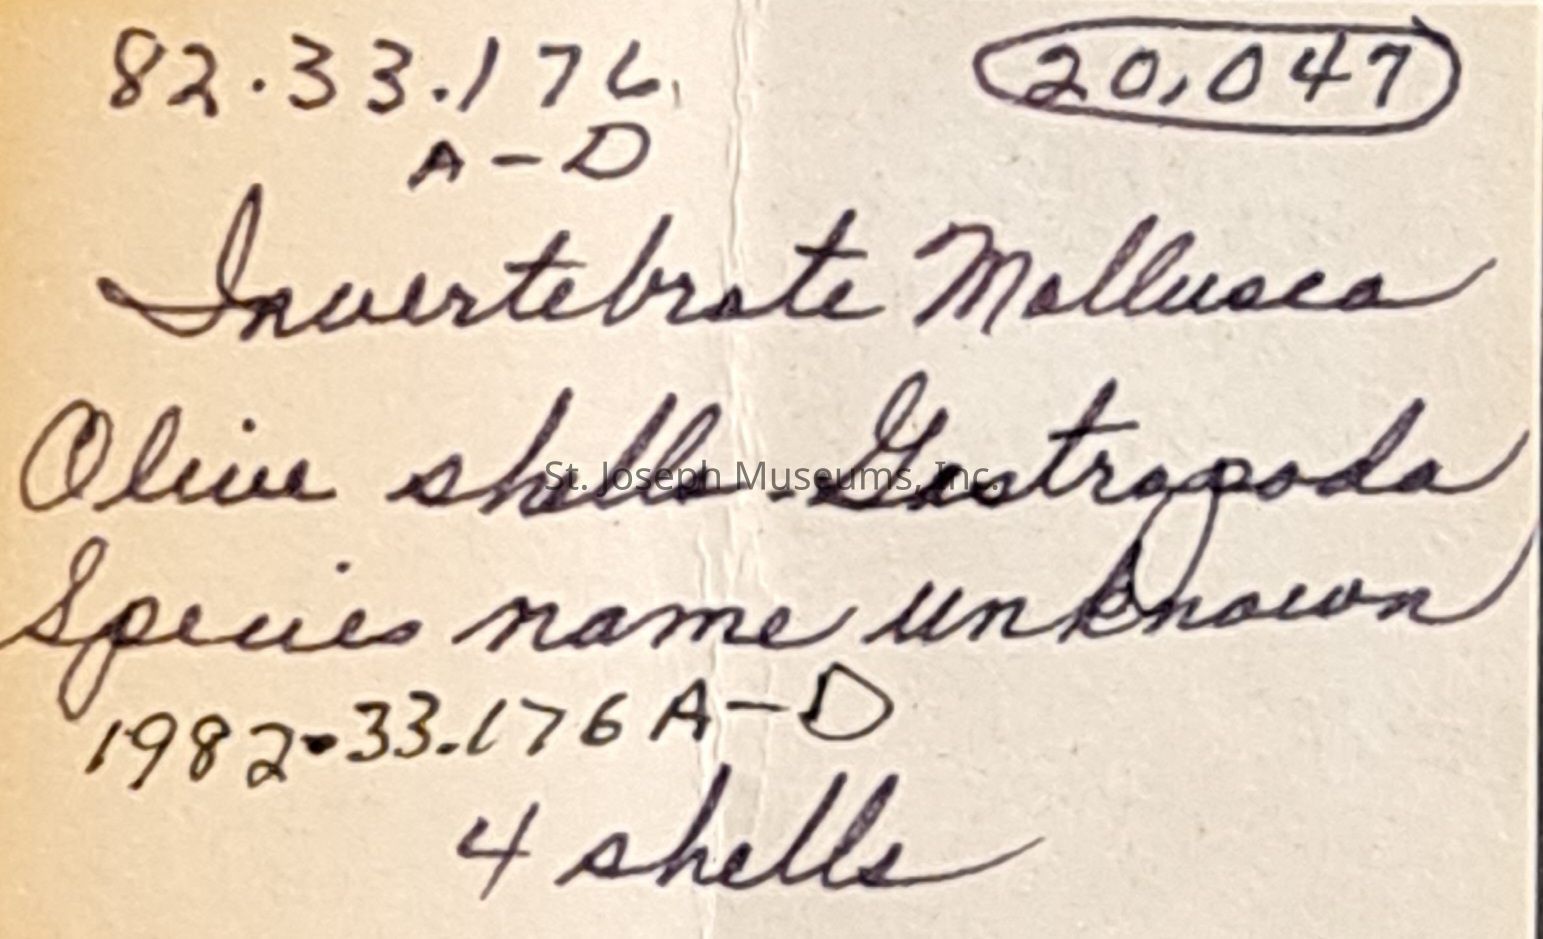 82.33.176
20,047
A-D
Invertebrate Mollusca
Olive shells - Gastropoda
St. Joseph Museums, Inc.
Species name unknown
1982.33.176 A-D
4 shells